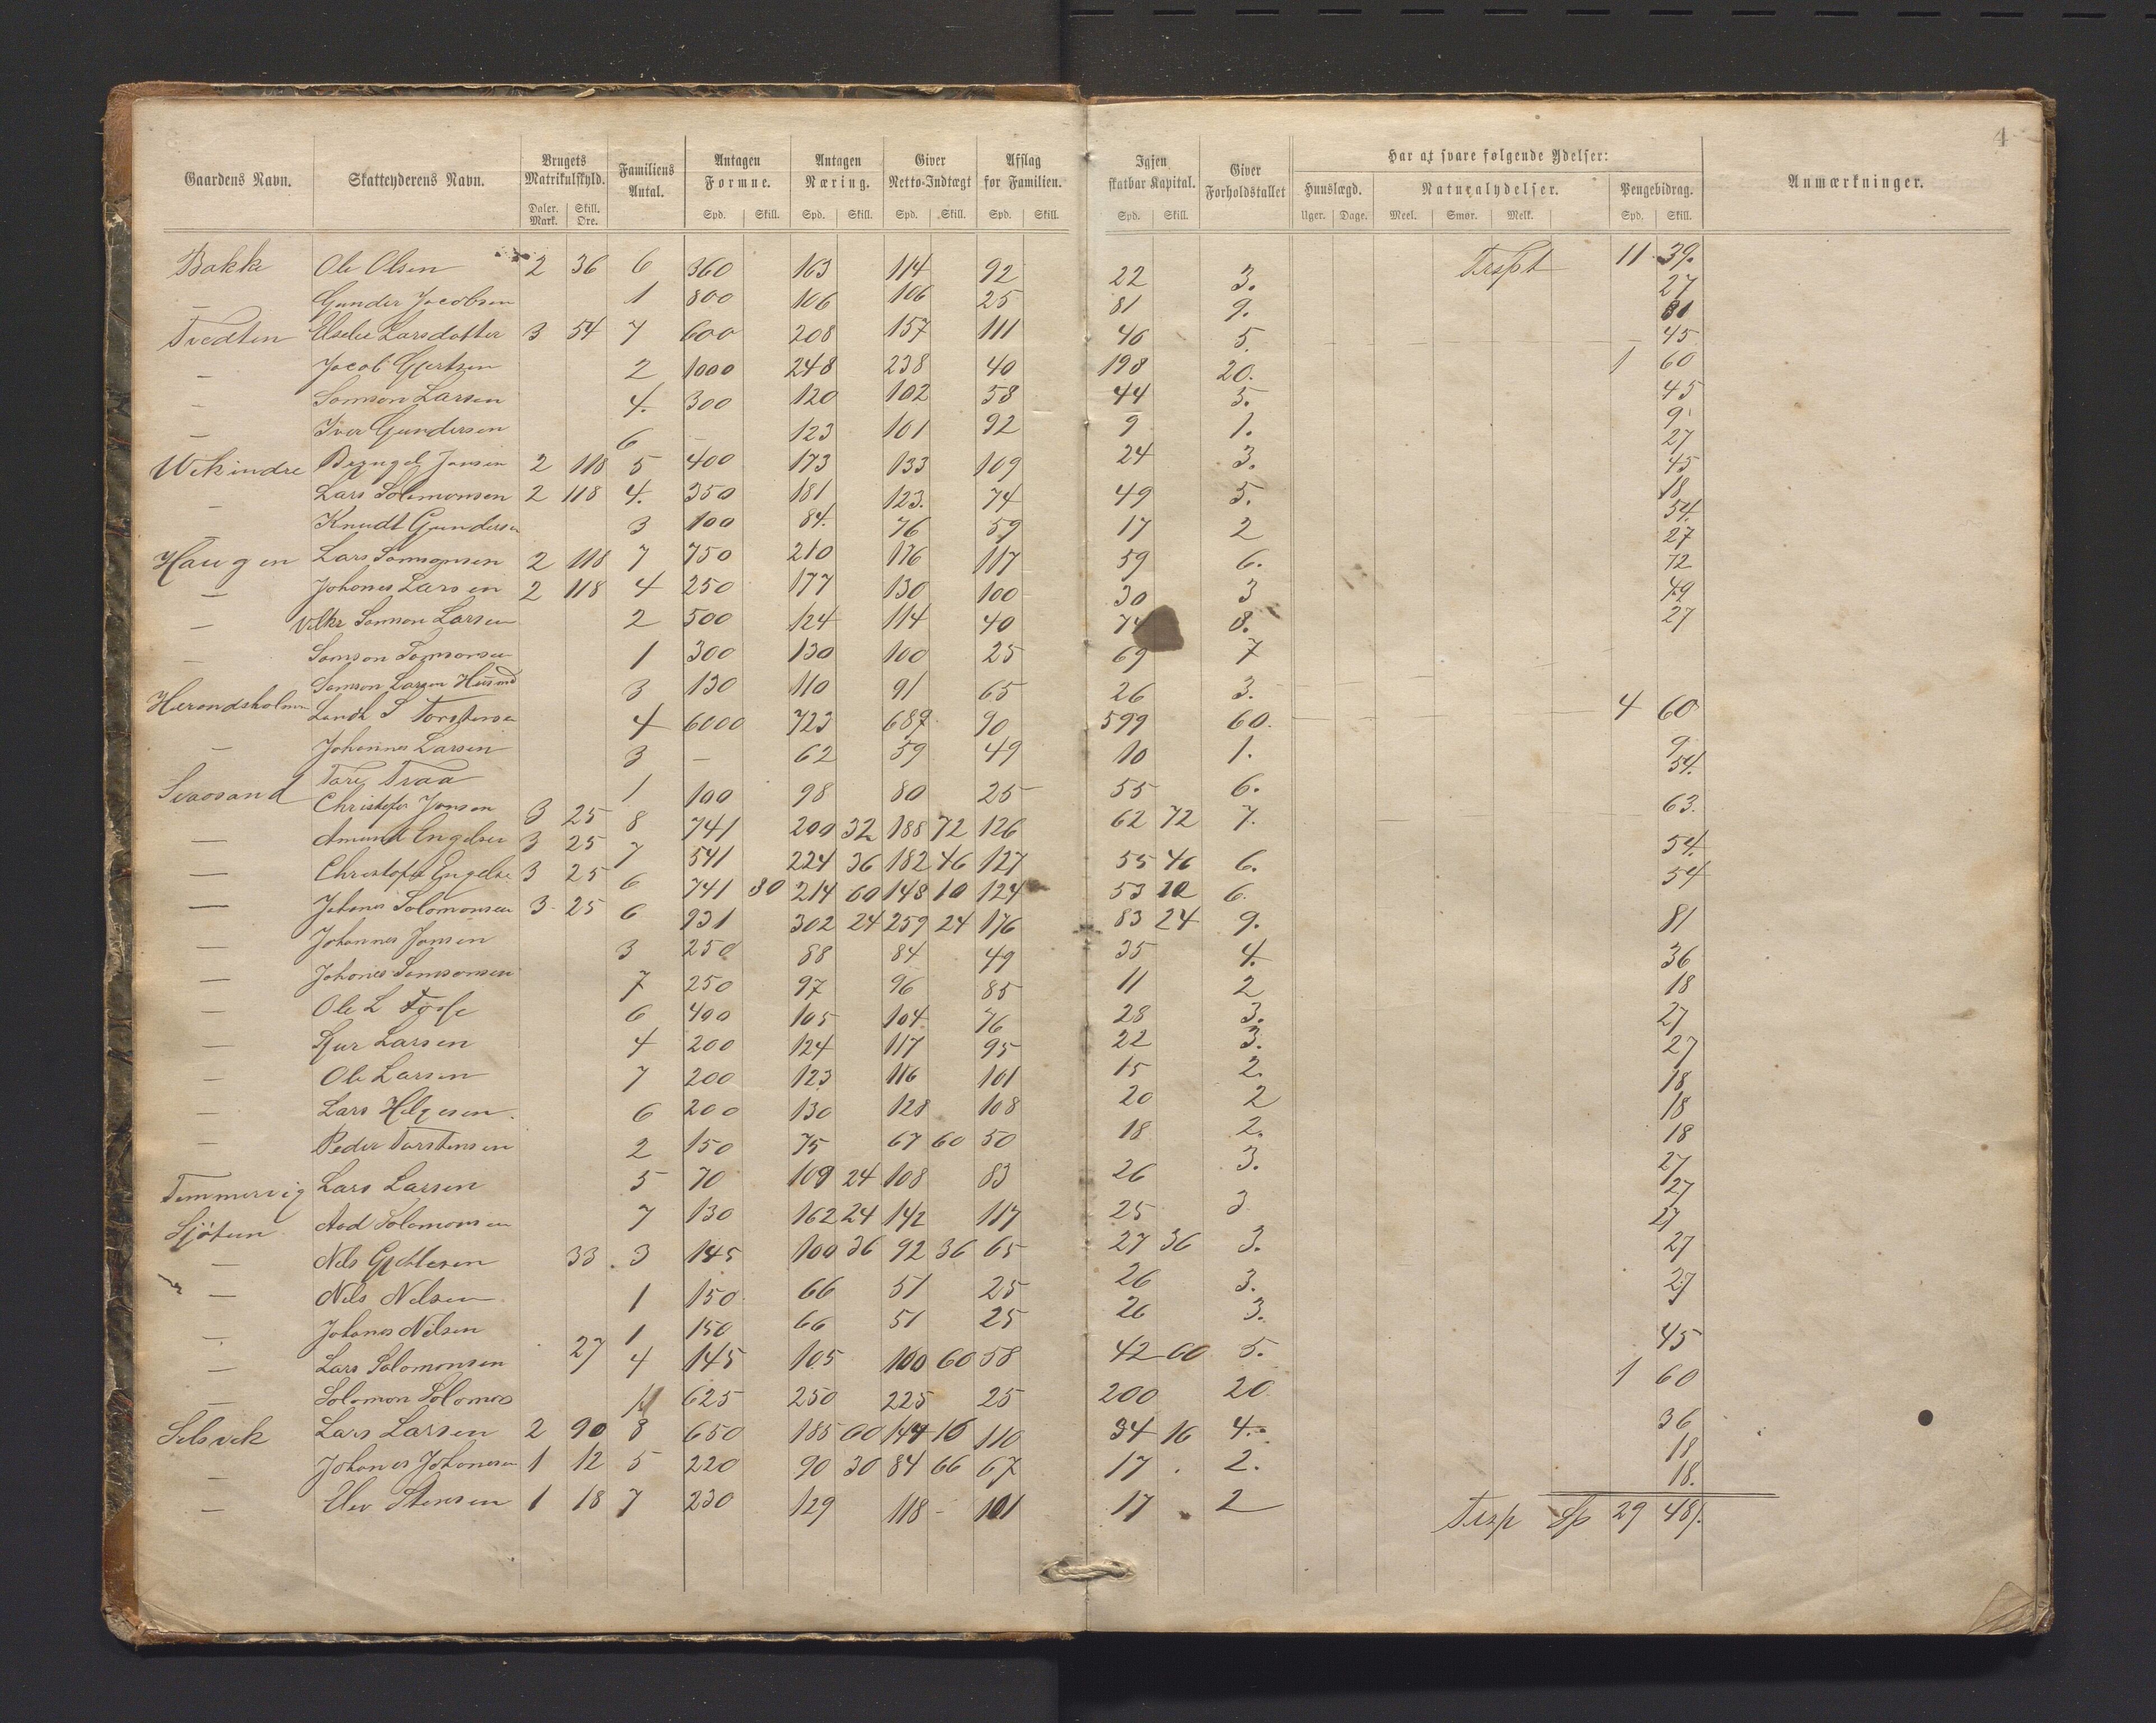 4
Gaardens Navn. Skatteyderens Navn. Brugets Matrikulskyld. Daler. Mark. Skill. Öre. Familiens Antal. Antagen Formue. Spd. Skill. Antagen Næring. Spd. Skill. Giver Netto-Indtægt Spd. Skill. Afslag for Familien. Spd. Skill. Igjen skatbar Kapital. Spd. Skill. Giver Forholdstallet Har at svare følgende Ydelser: Huuslægd. Uger. Dage. Naturalydelser. Meel. Smør. Melk. Pengebidrag. Spd. Skill. Anmærkninger.
Trspt 11 39.
Bakke Ole Olsen 2 36 6 360 163 114 92 22 3. 27
— Gunder Jacobsen 1 800 106 106 25 81 9. 81
Tvedten Elselie Larsdatter 3 54 7 600 208 157 111 46 5. 45
— Jacob Gjertsen 2 1000 248 238 40 198 20. 1 60
— Samson Larsen 4. 300 120 102 58 44 5. 45
— Iver Gundersen 6 — 123 101 92 9 1. 9
Wekindre Bryngel Jansen 2 118 5 400 173 133 109 24 3. 27
— Lars Solemonsen 2 118 4. 350 181 123. 74 49 5. 45
— Knudt Gundersen 3 100 84. 76 59 17 2 18
Haugen Lars Samsonsen 2 118 7 750 210 176 117 59 6. 54.
— Johanes Larsen 2 118 4 250 177 130 100 30 3 27
— Vilkr Samson Larsen 2 500 124 114 40 74 8. 72
— Samson Samsonsen 1 300 130 100 25 69 7
Samson Larsen Husmd 3 130 110 91 65 26 3. 27
Herandsholmen Landh S Torstensen 4 6000 723 689. 90 599 60. 4 60
— Johannes Larsen 3 — 62 59 49 10 1. 9
Svaosand Tore Traa 1 100 98 80 25 55 6. 54.
Christofer Jonsen 3 25 8 741 200 32 188 72 126 62 72 7. 63.
— Amund Engelsen 3 25 7 541 224 36 182 46 127 55 46 6. 54.
— Christofer Engelse 3 25 6 741 80 214 60 148 10 124 53 10 6. 54
— Johanes Solomonsen 3 25 6 931 302 24 259 24 176 83 24 9. 81
— Johannes Jansen 3 250 88 84 49 35 4. 36
— Johanes Samsonsen 7 250 97 96 85 11 2 18
— Ole L Fosse 6 400 105 104 76 28 3. 27
— Sjur Larsen 4 200 124 117 95 22 3. 27
— Ole Larsen 7 200 123 116 101 15 2. 18
— Lars Helgesen. 6 200 130 128 108 20 2 18
— Peder Torstensen 2 150 75 67 60 50 18 2. 18
Temmervig Lars Larsen 5 70 109 24 108 83 26 3. 27
Sjötun Aad Solomonsen 7 130 162 24 142 117 25 3 27
— Nels Gjetlesen 33 3 145 100 36 92 36 65 27 36 3. 27
— Nels Nelsen 1 150 66 51 25 26 3. 27
— Johanes Nelsen 1 150 66 51 25 26 3. 27
— Lars Salomonsen 27 4 145 105 100 60 58 42 60 5. 45
— Solomon Solomos 1 625 250 225 25 200 20 1 60
Selsvik Lars Larsen 2 90 8 650 185 60 144 16 110 34 16 4. 36
— Johanes Johanesen 1 12 5 220 90 30 84 66 67 17 . 2. 18
— Elev Stensen 1 18 7 230 129 118 - 101 17 2 18.
Trsp Sp 29 48/.